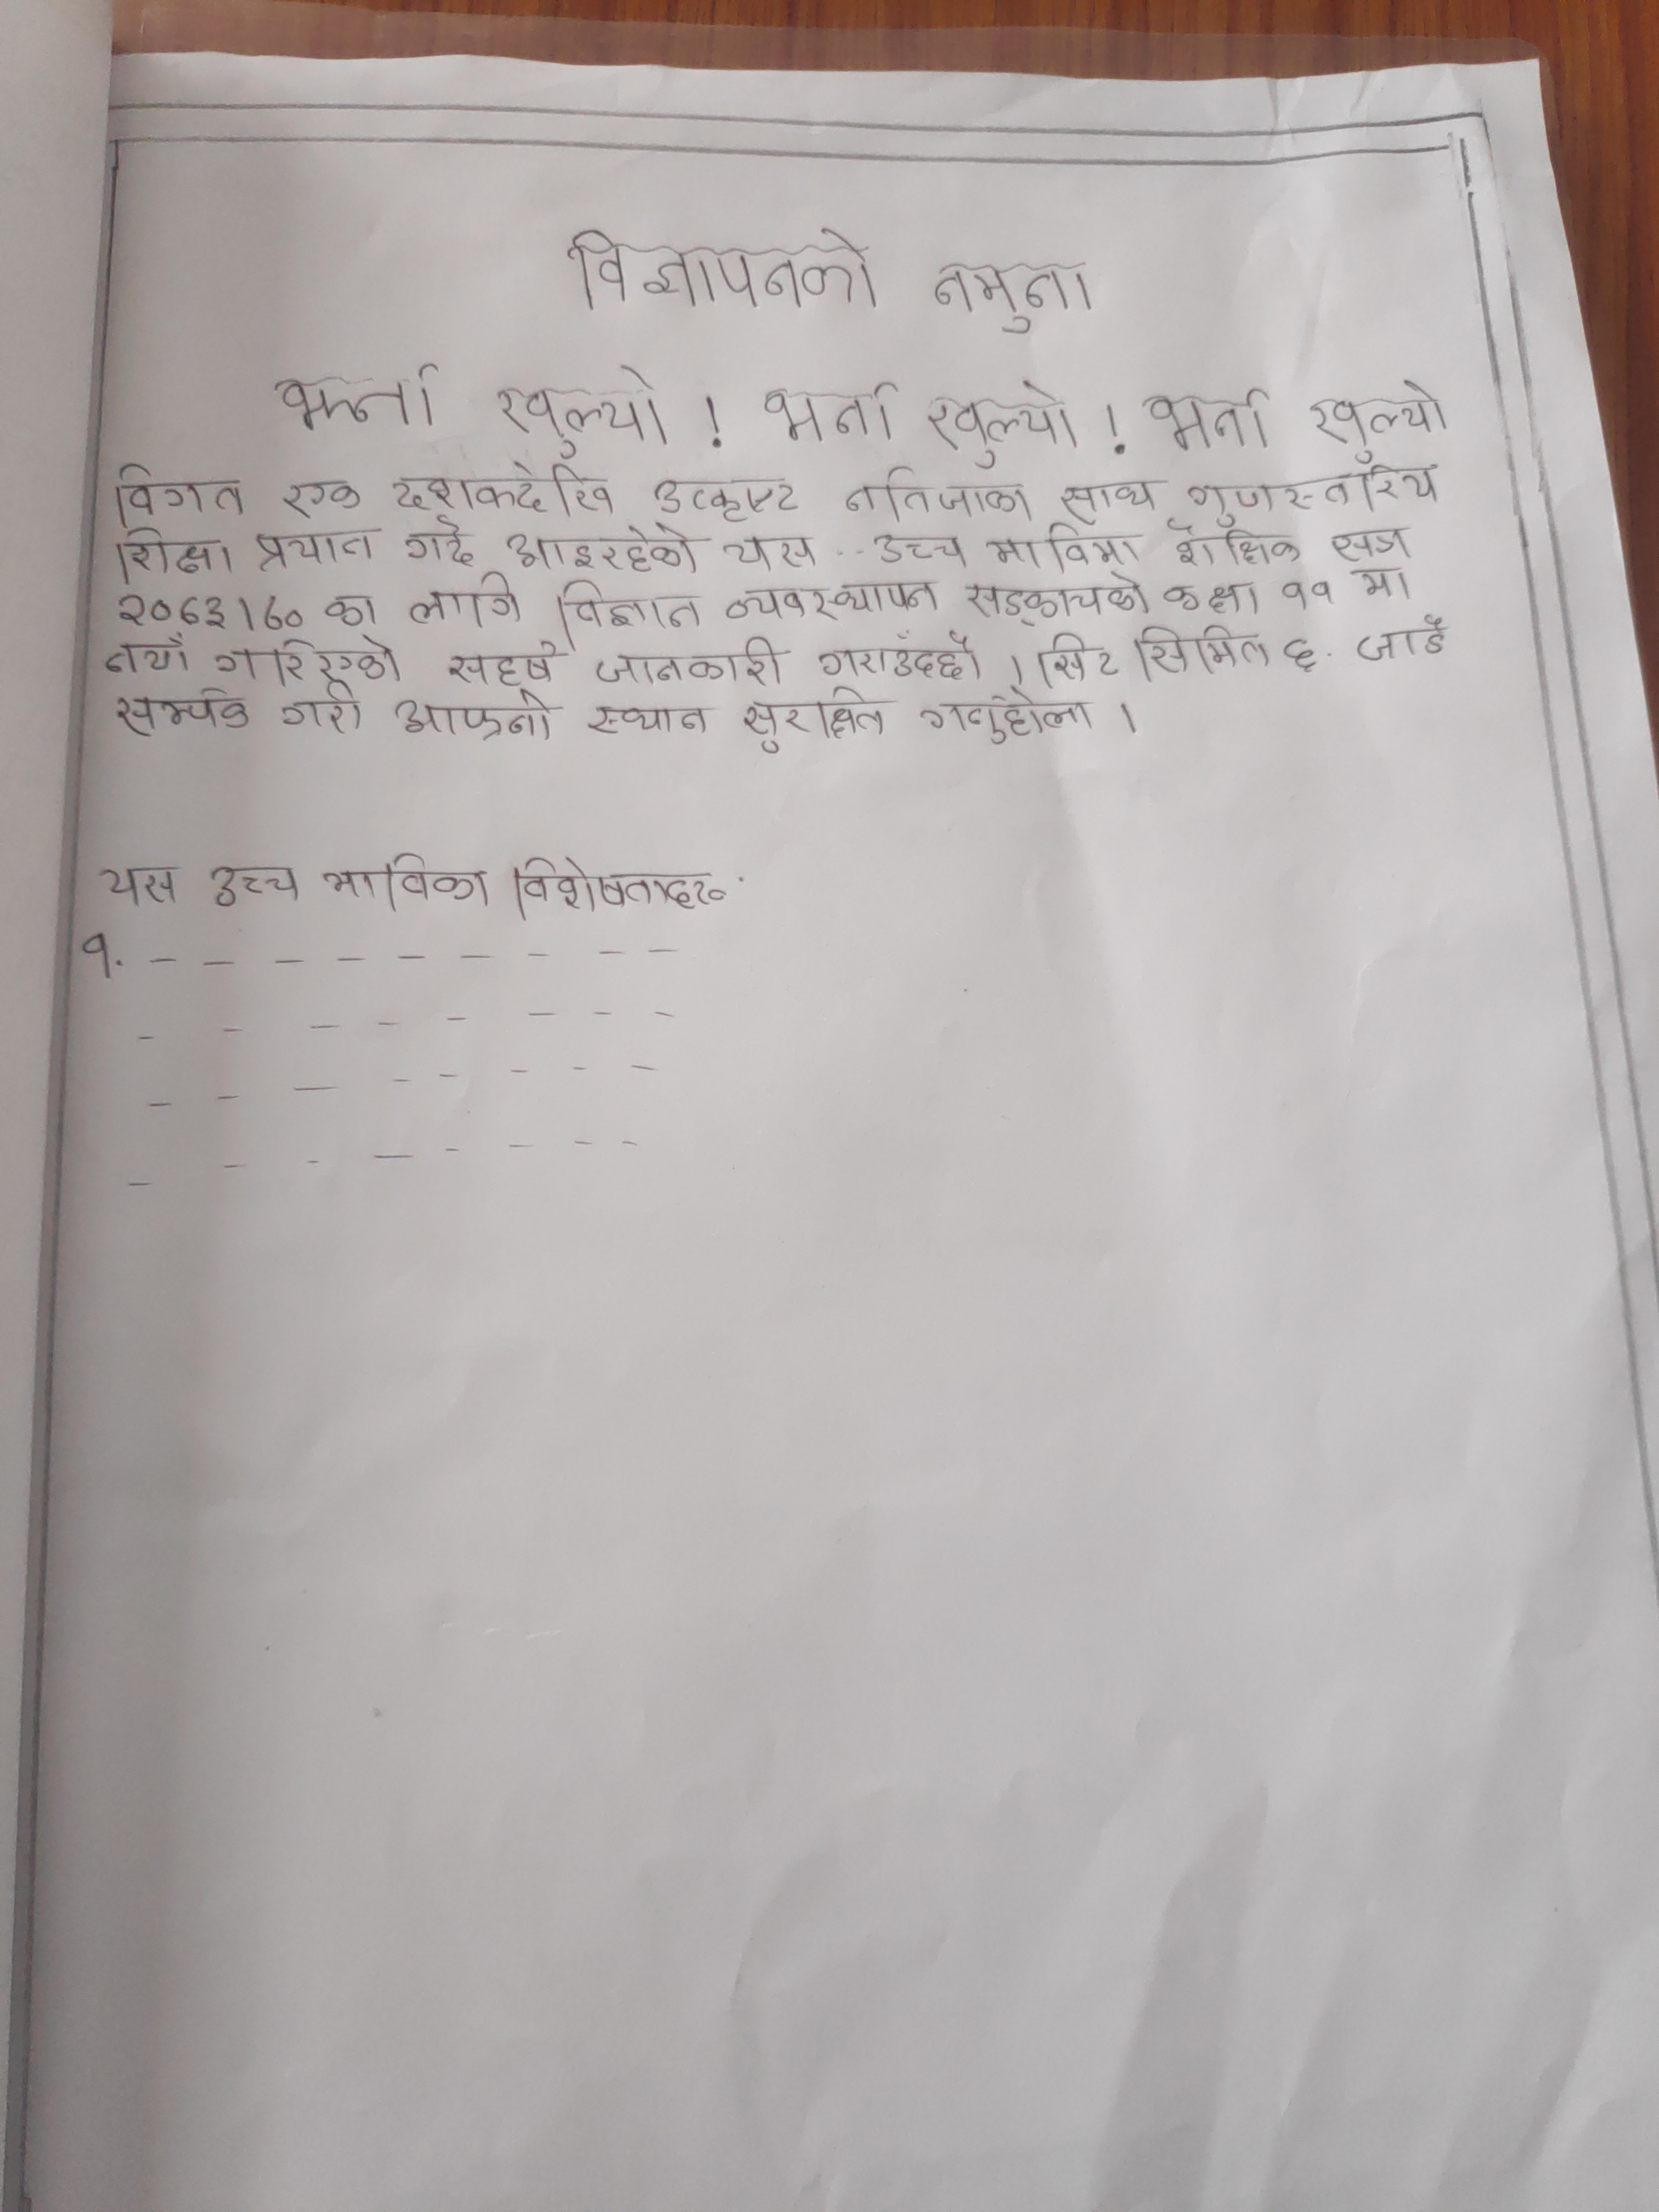 विज्ञापनको नमुना
भर्ना खुल्यो ! भर्ना खुल्यो ! भर्ना खुल्यो
विगत एक दशकदेखि उत्कृष्ट नतिजाका साथ गुणस्तरिय
शिक्षा प्रयान गर्दै आइरहेको यस .. उच्च माविमा शैक्षिक सत्र
का लागि विज्ञान व्यवस्थापन सङ्कायको कक्षा ११ मा
नयाँ गरिएको सहर्ष जानकारी गराउँदछौँ । सिट सिमित छ.
सर्म्पक गरी आफ्नो स्थान सुरक्षित गर्नुहोला ।
यस उच्च माविका विशेषताहरु
१. – – – – – – – – –
– – – – – – – –
– – – – – – – –
– – – – – – – –